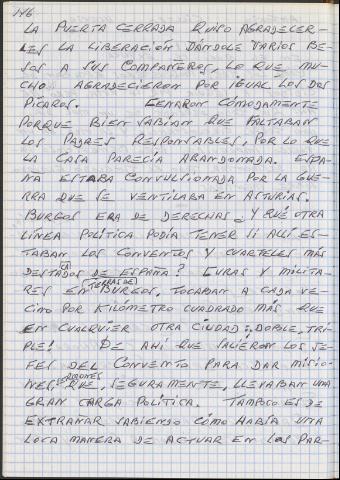 146
LA PUERTA CERRADA QUISO AGRADECER-
LES LA LIBERACIÓN DÁNDOLE VARIOS BE-
SOS A SUS COMPAÑEROS, LO QUE MU-
CHO AGRADECIERON POR IGUAL LOS DOS
PÍCAROS. CENARON CÓMODAMENTE
PORQUE BIEN SABÍAN QUE FALTABAN
LOS PADRES RESPONSABLES, POR LO QUE
LA CASA PARECÍA ABANDONADA. ESPA-
ÑA ESTABA CONVULSIONADA POR LA GUE-
RRA QUE SE VENTILABA EN ASTURIAS.
BURGOS ERA DE DERECHAS ¿Y QUÉ OTRA
LÍNEA POLÍTICA PODÍA TENER SI ALLÍ ES-
TABAN LOS CONVENTOS Y CUARTELES MÁS
DESTACADOS DE ESPAÑA? CURAS Y MILITA-
RES EN TIERRAS DE BURGOS, TOCABAN A CADA VE-
CINO POR KILÓMETRO CUADRADO MÁS QUE
EN CUALQUIER OTRA CIUDAD: ¡DOBLE, TRI-
PLE! DE AHÍ QUE SALIERON LOS JE-
FES DEL CONVENTO PARA DAR MISIO-
NES, SERMONES QUE, SEGURAMENTE, LLEVABAN UNA
GRAN CARGA POLÍTICA. TAMPOCO ES DE
EXTRAÑAR SABIENDO CÓMO HABÍA UNA
LOCA MANERA DE ACTUAR EN LOS PAR-